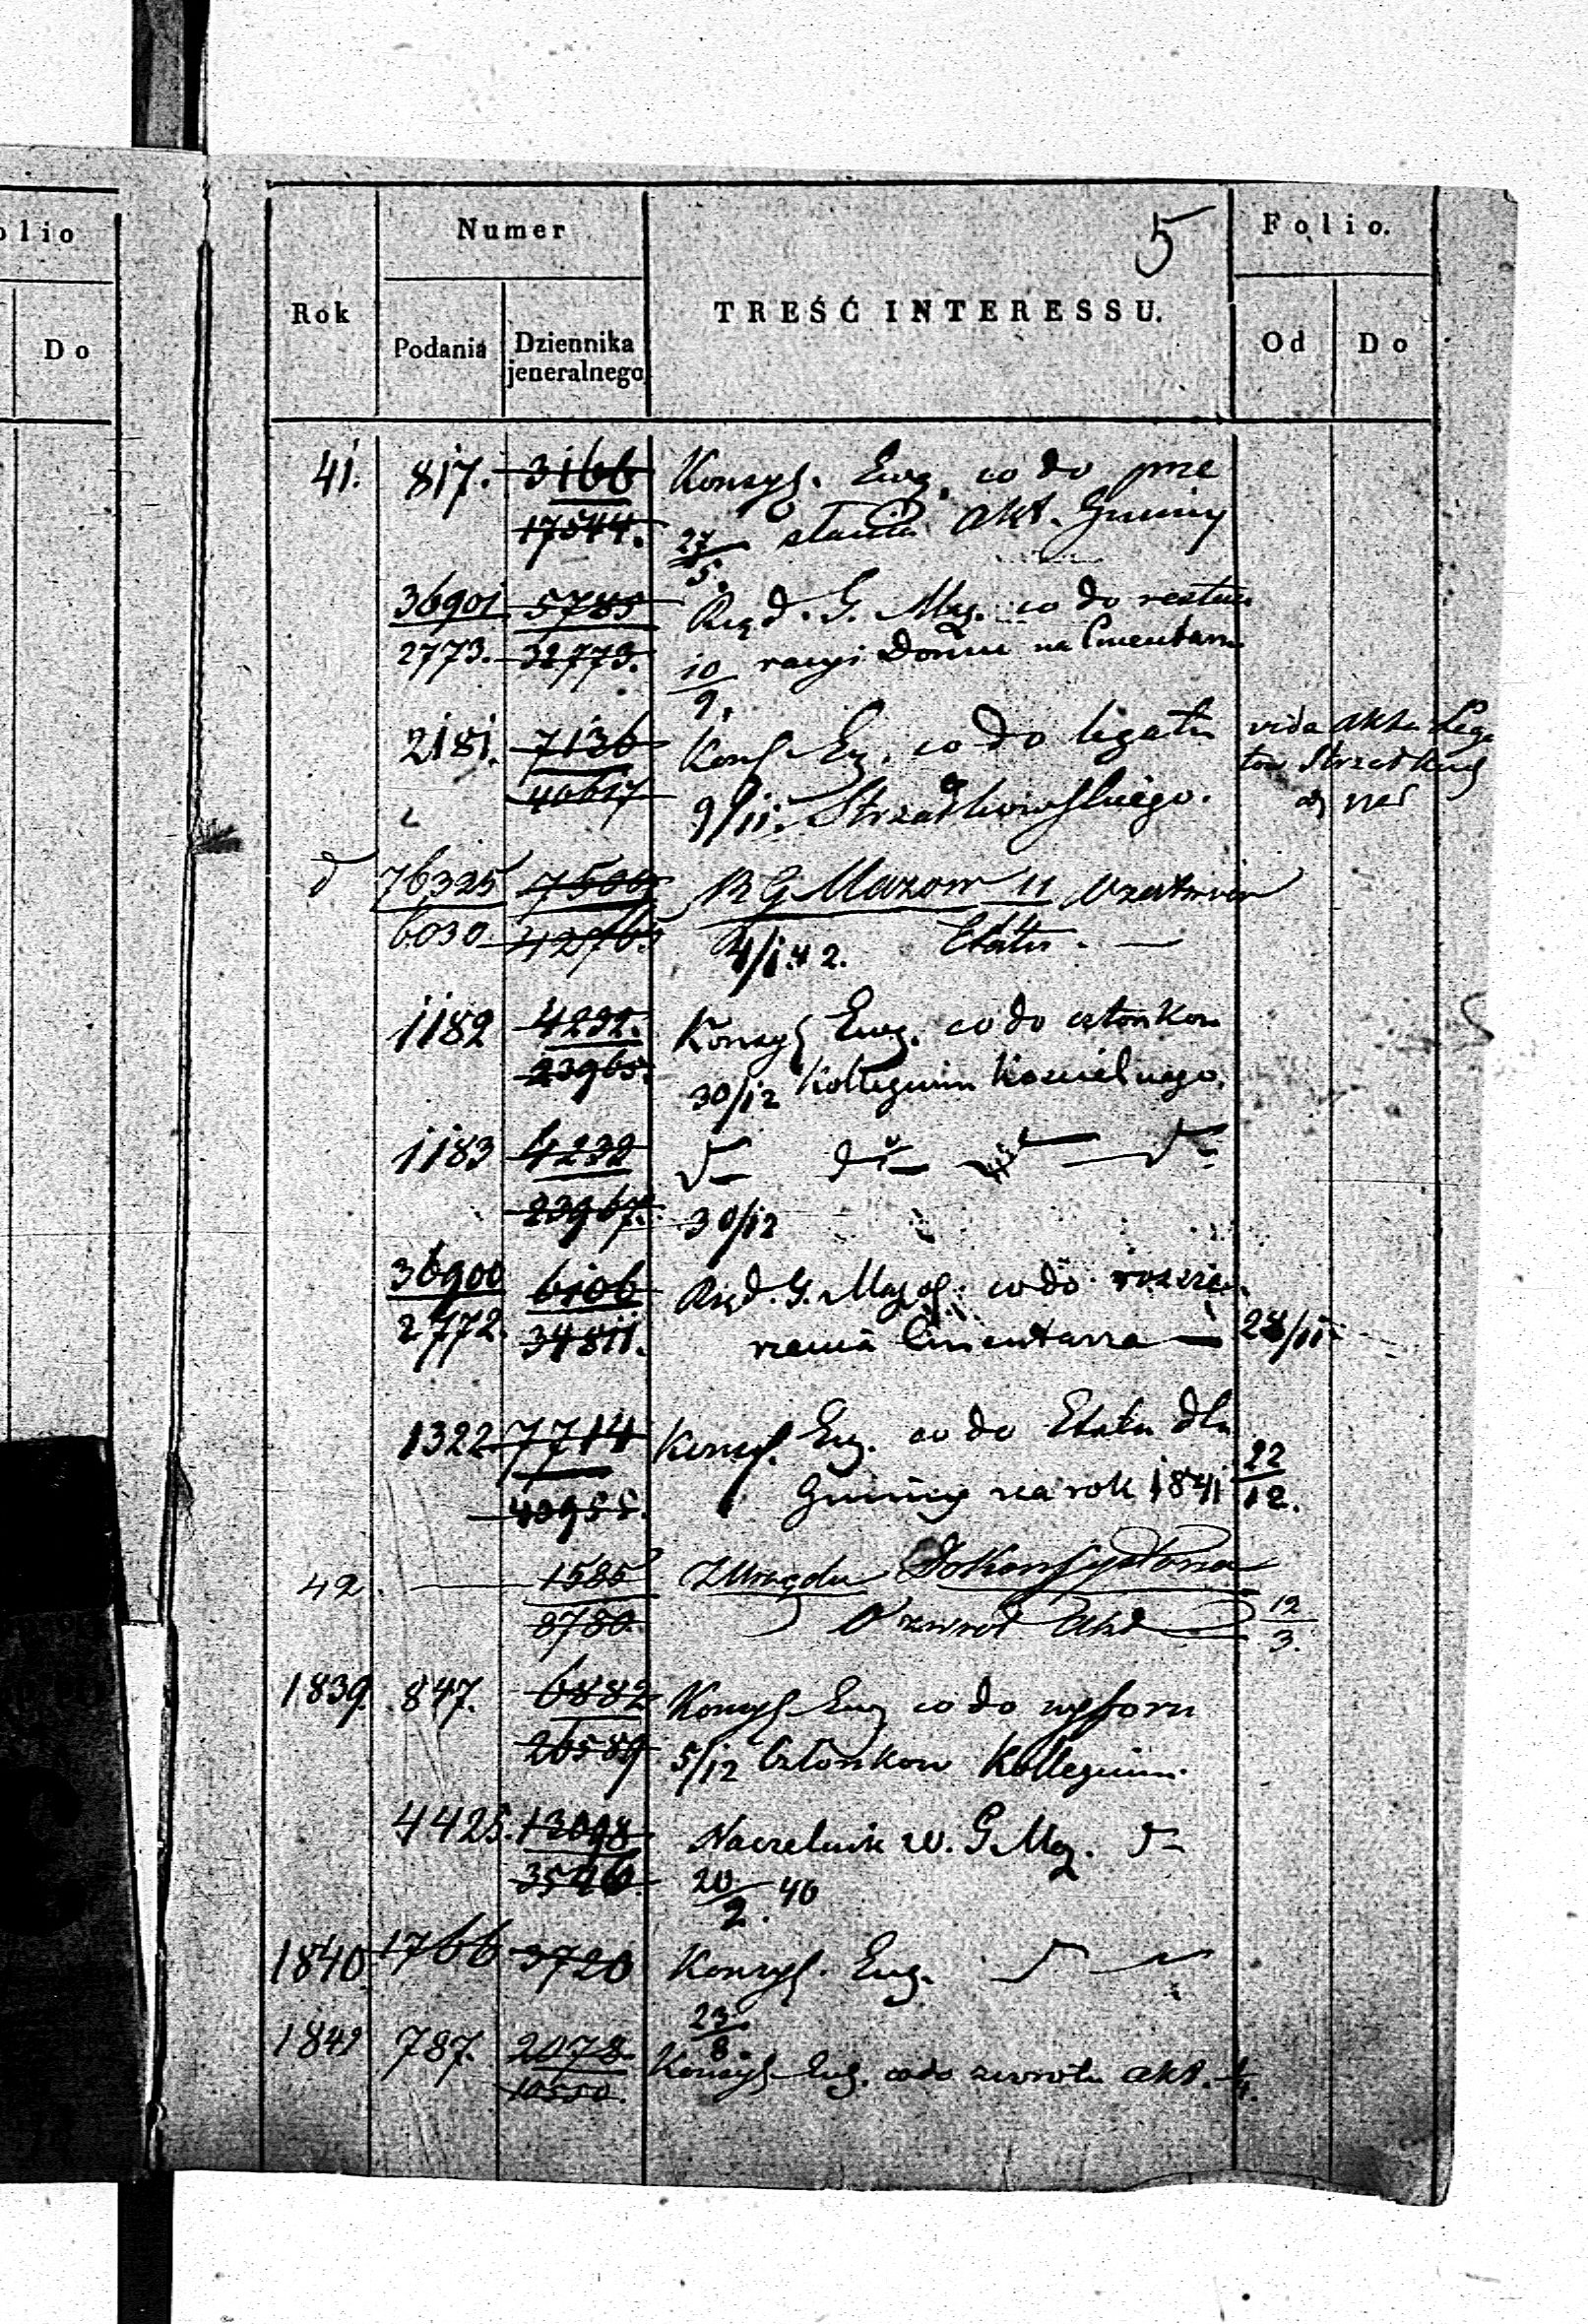 olio
Do
Numer
5
Folio.
Rok
Podania
Dziennika
jeneralnego
TREŚĆ INTERESSU.
Od
Do
41. 817. 3166 Konsys. Ewg. co do prze
17544. 27/5. słania Akt. Gminy
36901 5785 Rząd. G. Maz. co do restau
2773. 32773. 10/9. racyi Domu na Cmentarzu
2181. 7136 Kons. Ew. co do legatu vida akta Lega
40617 9/11. Strzałkowskiego. tow Strzałkows
76325 7500 R G Mazow
6030 4/1.42. Etatu. —
1182 4232. Konsys Ewg. co do członkow
23965. 30/12 Kollegium Koscielnego.
1183 4232
23967. 30/12
36900 6106 Rząd. G. Mazow. co do rozsze
2772. 34811. rzenia Cmentarza — 28/11
1322 7714 Konsys. Ewg. co do Etatu dla
40955. Gminy na rok 1841 22/12.
42. — 1585 Z Urzędu Do Konsystorza
8780. O zwrot Akt 12/3.
1839. 847. 6882 Konsys Ewg co do wyboru
26589 5/12 Członkow Kollegium.
4425. 13098 Naczelnik w. G Maz.
3546. 20/2. 40
1840 1766 3720 Konsys. Ewg.
23/8.
1842 787. 2078 Konsys Ewg. co do zwrotu akt.
10550.